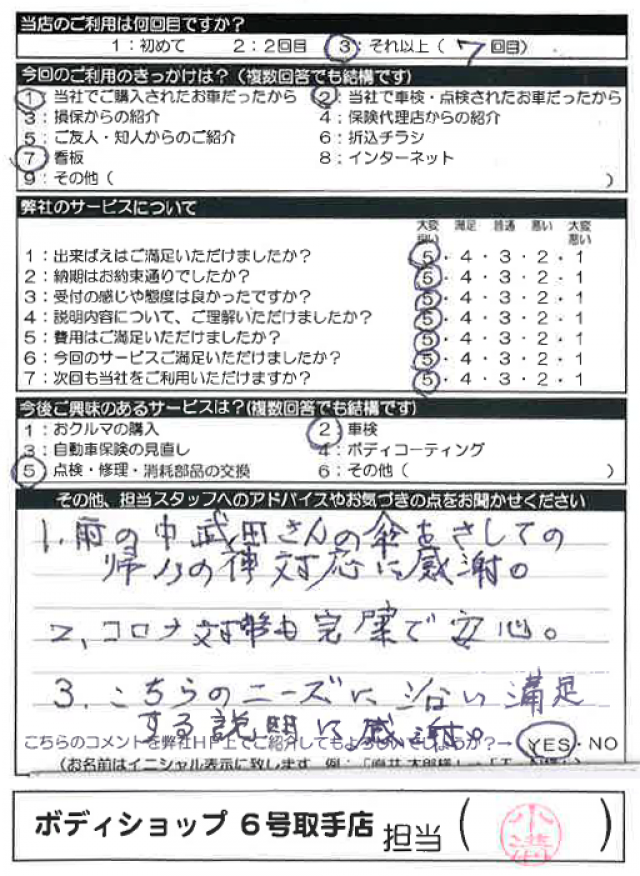 当店のご利用は何回目ですか?
1：初めて 2：2回目 3：それ以上（ 7 回目）
今回のご利用のきっかけは？（複数回答でも結構です）
1：当社でご購入されたお車だったから 2：当社で車検・点検されたお車だったから
3：損保からの紹介 4：保険代理店からの紹介
5：ご友人・知人からのご紹介 6：折込チラシ
7：看板 8：インターネット
9：その他（ ）
弊社のサービスについて
大変 満足 普通 悪い 大変
良い 悪い
1：出来ばえはご満足いただけましたか？ 5・4・3・2・1
2：納期はお約束通りでしたか？ 5・4・3・2・1
3：受付の感じや態度は良かったですか？ 5・4・3・2・1
4：説明内容について、ご理解いただけましたか？ 5・4・3・2・1
5：費用はご満足いただけましたか？ 5・4・3・2・1
6：今回のサービスご満足いただけましたか？ 5・4・3・2・1
7：次回も当社をご利用いただけますか？ 5・4・3・2・1
今後ご興味のあるサービスは？(複数回答でも結構です)
1：おクルマの購入 2：車検
3：自動車保険の見直し 4：ボディコーティング
5：点検・修理・消耗部品の交換 6：その他（ ）
その他、担当スタッフへのアドバイスやお気づきの点をお聞かせください
1. 雨の中武田さんの傘をさしての
帰りの 対応に感謝。
2、コロナ対策も完璧で安心。
3. こちらのニーズに沿い満足
する説明に感謝。
こちらのコメントを弊社HP上でご紹介してもよろしいでしょうか？→ YES・NO
(お名前はイニシャル表示に致します 例：
ボディショップ 6号取手店 担当（ 小溝 ）